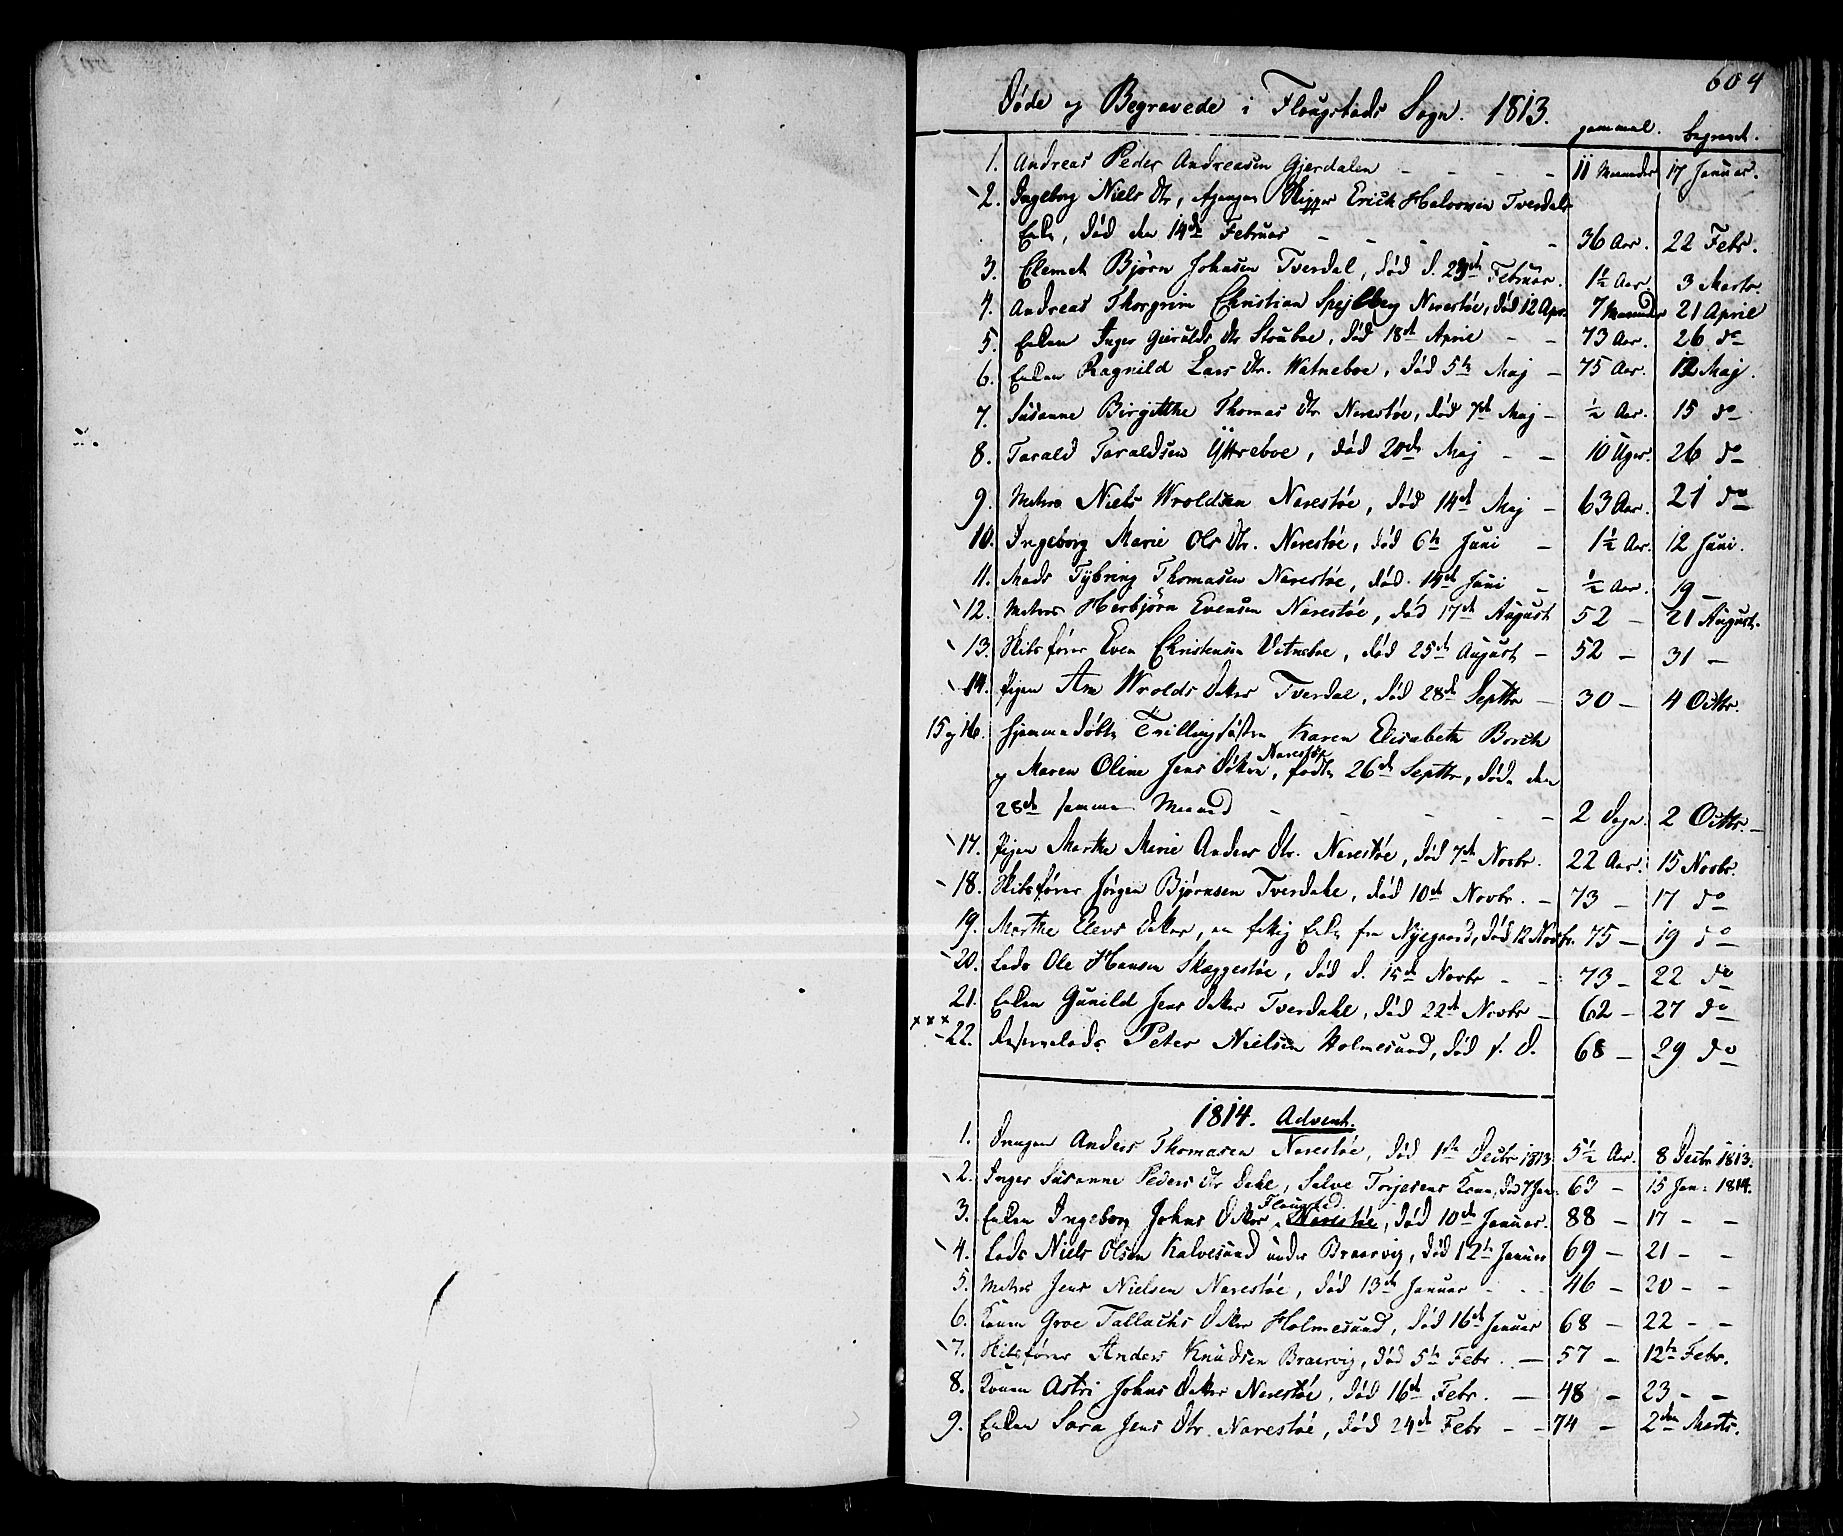 604
Døde og Begravede i Flougstads Sogn. 1813.
gammel. begravet.
1. Andreas Peder Andreasen Gjerdalen - - - - 11 Maaneder 17 Januar.
2. Ingeborg Niels Dtr, afgangne Skipper Erich Halvorsen Tverdals
Enke, død den 14de Februar - - - - - 36 Aar. 22 Febr.
3. Clemet Bjørn Johnsen Tverdal, død d. 23de Februar. 1½ Aar. 3 Marts.
4. Andreas Thorgrim Christian Spejlberg Narestøe, død 12 Apr. 7 Maaneder 21 April
5. Enken Inger Gierulds Dtr Stouboe, død 18de April - - 73 Aar. 26 do
6. Enken Ragnild Lars Dtr. Watneboe, død 5te Maj - 75 Aar. 12 Maj.
7. Susanne Birgitthe Thomas Dtr Narestøe, død 7de Maj - ½ Aar. 15 do
8. Tarald Taraldsen Yttreboe, død 20de Maj - - 10 Uger. 26 do
9. Matros Niels Wroldsen Narestøe, død 14de Maj - 63 Aar. 21 do
10. Ingeborg Marie Ols Dtr. Narestøe, død 6te Juni - 1½ Aar. 12 Juni.
11. Mads Tybring Thomasen Narestøe, død 14de Juni - ½ Aar. 19 -
12. Matros Herbjörn Evensen Narestøe, død 17de August 52 - 21 August.
13. Skibsfører Even Christensen Vatneboe, død 25de August - 52 - 31 -
14. Pigen Ane Wrolds Datter Tverdal, død 28de Septbr - 30 - 4 Octbr.
15 og 16. hjemmedøbte Trillingsøstre Karen Elisabeth Borith
og Maren Oline Jens Døttre Narestøe, fødte 26de Septbr, døde den
28de samme Maaned - - - - - 2 Dage. 2 Octbr. -
17. Pigen Marthe Marie Anders Dtr. Narestøe, død 7de Novbr. 22 Aar. 15 Novbr.
18. Skibsfører Jörgen Bjørnsen Tverdale, død 10de Novbr. - 73 - 17 do
19. Marthe Elens Datter, en fattig Enke fra Nyegaard, død 12 Novbr. 75 - 19 do
20. Lods Ole Hansen Skaggestøe, død d. 15de Novbr - - 73 - 22 do
21. Enken Gunild Jens Datter Tverdale, død 22de Novbr - 62 - 27 do
x x x
22. Reservelods Peter Nielsen Holmesund, død s. D. 68 - 29 do
1814. Advent.
1. Drengen Anders Thomasen Narestøe, død 1ste Decbr 1813. 5½ Aar. 8 Decbr 1813.
2. Inger Susanne Peders Dtr Dahl, Salve Torjesens Kone, død 7 Jan: 63 - 15 Jan: 1814.
3. Enken Ingeborg Johns Datter Flougstad. Narestøe, død 10de Januar. 88 - 17 - -
4. Lods Niels Olsen Kalvesund under Braarvig, død 12te Januar 69 - 21 - -
5. Matros Jens Nielsen Narestøe, død 13de Januar - - - 46 - 20 - -
6. Konen Groe Tallachs Datter Holmesund, død 16de Januar 68 - 22 - -
7. Skibsfører Anders Knudsen Braarvig, død 5te Febr. - 57 - 12te Febr.
8. Konen Astri Johns Datter Narestøe, død 16de Febr. - 48 - 23 - -
9. Enken Sara Jens Dtr. Narestøe, død 24de Febr - - 74 - 2den Marts.